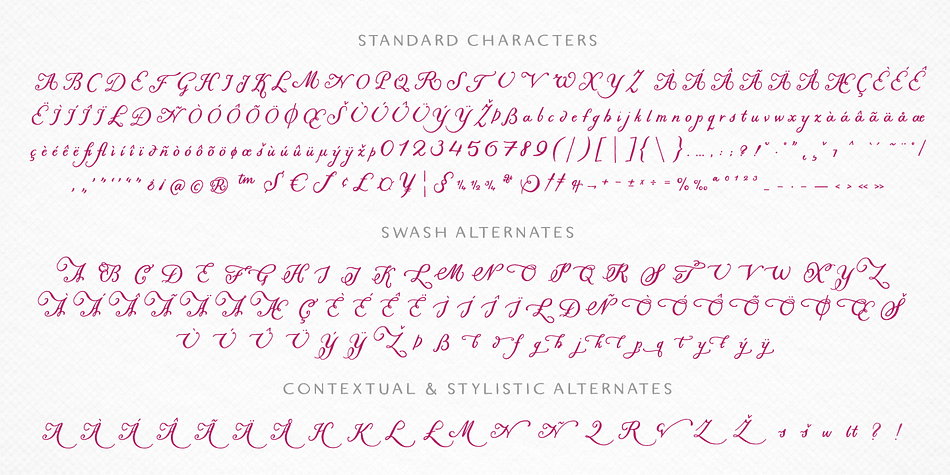 STANDARD CHARACTERS
A B C D E F G H I J K L M N O P Q R S T U V W X Y Z À Á Â Ã Ä Å Æ Ç È É Ê
Ë Ì Í Î Ï Ł Ð Ñ Ò Ó Ô Õ Ö Ø Œ Š Ù Ú Û Ü Ý Ÿ Ž Þ ß a b c d e f g h i j k l m n o p q r s t u v w x y z à á â ã ä å æ
ç è é ê ë fi fl ì í î ï ð ñ ò ó ô õ ö ø œ š ù ú û ü µ ý ÿ ž þ 0 1 2 3 4 5 6 7 8 9 ( / ) [ | ] { \ } . … , : ; ? !
@ © ® ™ $ € ¢ £ ¤ ¥ ¦ § ¼ ½ ¾ † ‡ ¬ + - ± × ÷ = % ‰ ª º ¹ ² ³ _ – - — < > « »
SWASH ALTERNATES
A B C D E F G H I J K L M N O P Q R S T U V W X Y Z
À Á Â Ã Ä Å Æ Ç È É Ê Ë Ì Í Î Ï Ł Ð Ñ Ò Ó Ô Õ Ö Ø Œ Š
Ù Ú Û Ü Ý Ÿ Ž Þ ß t d f g h j k l p q r y t ý ÿ
CONTEXTUAL & STYLISTIC ALTERNATES
A À Á Â Ã Ä Å H K L Ł M N Ñ Q R V Z Ž s š w tt ? !